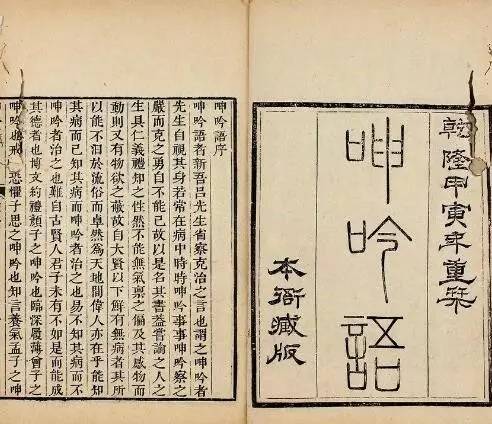 乾隆甲寅年重栞
呻吟語
本衙藏版
呻吟語序
呻吟語者新吾呂先生省察克治之言也謂之呻吟者
先生自視其身若常在病中時時呻吟事事呻吟察之
嚴而克之勇自不能已故以是名其書蓋嘗論之人之
生具仁義禮知之性然不能無氣稟之偏及其感物而
動則又有物欲之蔽故自大賢以下鮮有無病者其所
以能不汨於流俗而卓然為天地間偉人亦在乎能知
其病而已知其病而呻吟者治之也易不知其病而不
呻吟者治之也難自古賢人君子未有不如是而能成
其德者也博文約禮顏子之呻吟也臨深履薄曾子之
呻吟也戒恐懼子思之呻吟也知言養氣孟子之呻